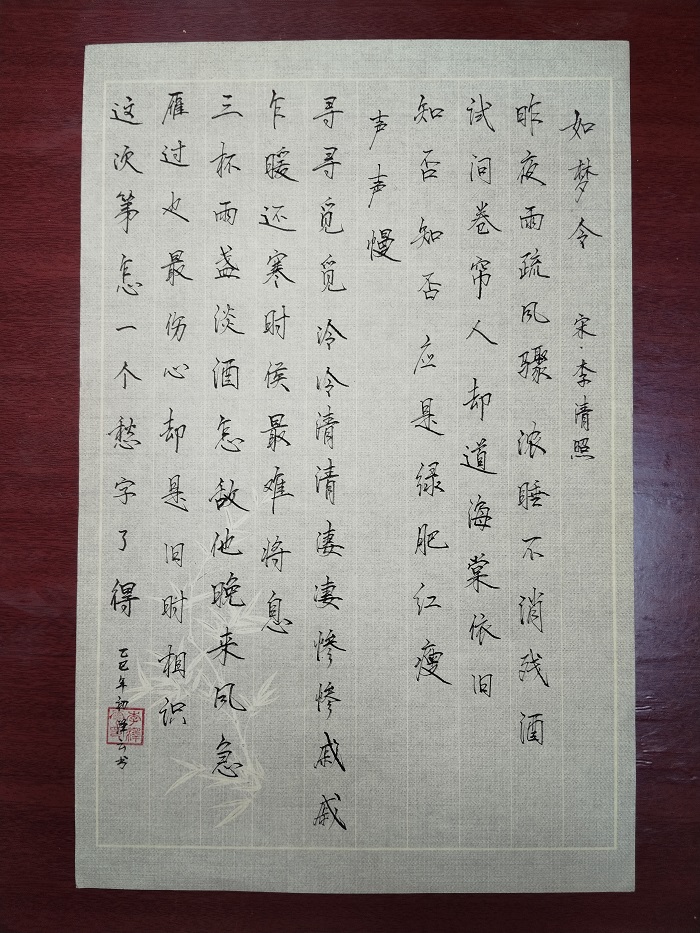 如梦令 宋·李清照
昨夜雨疏风骤浓睡不消残酒
试问卷帘人却道海棠依旧
知否知否应是绿肥红瘦
声声慢
寻寻觅觅冷冷清清凄凄惨惨戚戚
乍暖还寒时侯最难将息
三杯两盏淡酒怎敌他晚来风急
雁过也最伤心却是旧时相识
这次第怎一个愁字了得
乙巳年初 云书